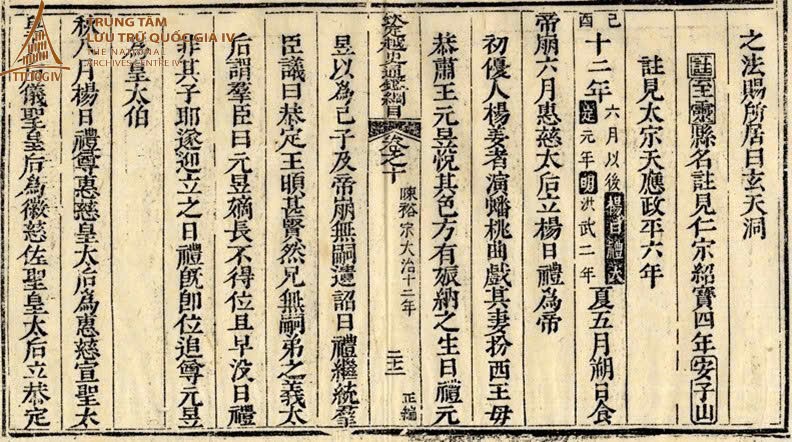 之法賜所居曰玄天洞
註至靈縣名註見仁宗紹寶四年安子山
註見太宗天應政平六年
己酉十二年六月以後楊日禮大定元年明洪武二年夏五月朔日食
帝崩六月惠慈太后立楊日禮爲帝
初優人楊姜者演蟠桃曲戲其妻扮西王母
恭肅王元昱悅其色方有娠納之生日禮元
欽定越史通鑑綱目 卷之十 陳裕宗大治十二年 正編
昱以為己子及帝崩無嗣遺詔日禮繼統羣
臣議曰恭定王頥甚賢然兄無嗣弟之義太
后謂羣臣曰元昱嫡長不得位且早没日禮
非其子耶遂迎立之日禮旣卽位追尊元昱
爲皇太伯
秋八月楊日禮尊惠慈皇太后為惠慈宣聖太
皇儀聖皇后為徽慈佐聖皇太后立恭定
TRUNG TÂM
LƯU TRỮ QUỐC GIA IV
THE NATIONAL
ARCHIVES CENTRE IV
TTLTQGIV